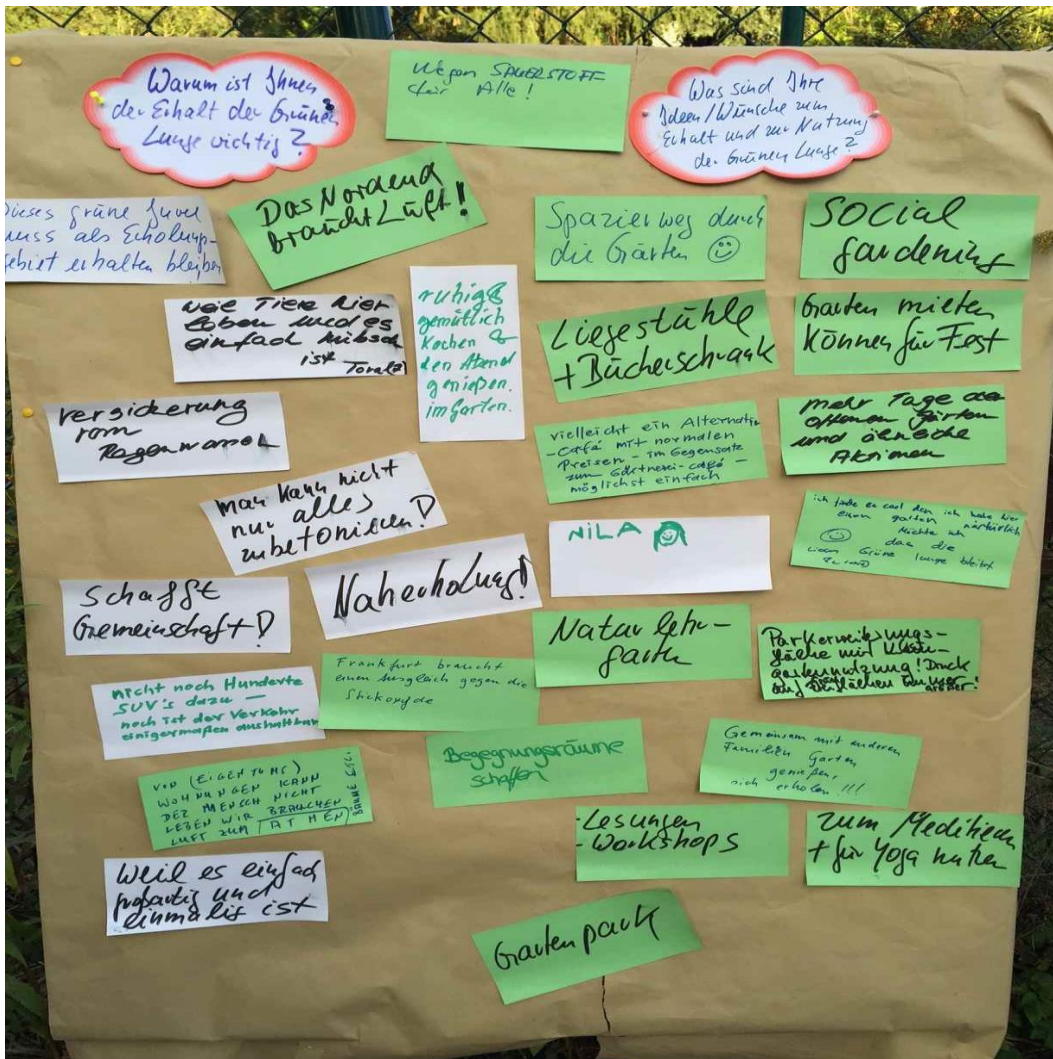 Warum ist Ihnen
der Erhalt der Grünen
Lunge wichtig?
Wegen SAUERSTOFF
für Alle!
Was sind Ihre
Ideen/Wünsche zum
Erhalt und zur Nutzung
der Grünen Lunge?
Dieses grüne Juwel
muss als Erholungs-
gebiet erhalten bleiben
Das Nordend
braucht Luft!
Spazierweg durch
die Gärten
Social
gardening
weil Tiere hier
leben und es
einfach hübsch
ist
ruhig &
gemütlich
Kochen &
den Abend
genießen.
im Garten.
Liegestühle
+ Bücherschrank
Garten mieten
können für Fest
Versickerung
vom
Regenwasser
vielleicht ein Alternativ
-Café mit normalen
Preisen - im Gegensatz
zum Gärtnerei-café -
möglichst einfach
mehr Tage der
offenen Gärten
und ähnliche
Aktionen
man kann nicht
nur alles
zubetonieren!
NILA
ich finde es cool den ich habe hier
einen garten natürlich
möchte ich
das die
Grüne lunge bleibt
Schafft
Gemeinschaft!
Naherholung!
Natur lehr-
garten
Druck
nicht noch Hunderte
SUV's dazu -
noch ist der Verkehr
einigermaßen aushaltbar
Frankfurt braucht
einen Ausgleich gegen die
Stickoxyde
Begegnungsräume
schaffen
Gemeinsam mit anderen
Familien Garten
genießen,
sich erholen!!!
VON (EIGENTUMS)
WOHNUNGEN KANN
DER MENSCH NICHT
LEBEN WIR BRAUCHEN
LUFT ZUM ATMEN
BÄUME ETC.
-Lesungen
-Workshops
zum Meditieren
+ für Yoga nutzen
Weil es einfach
großartig und
einmalig ist
Gartenpark